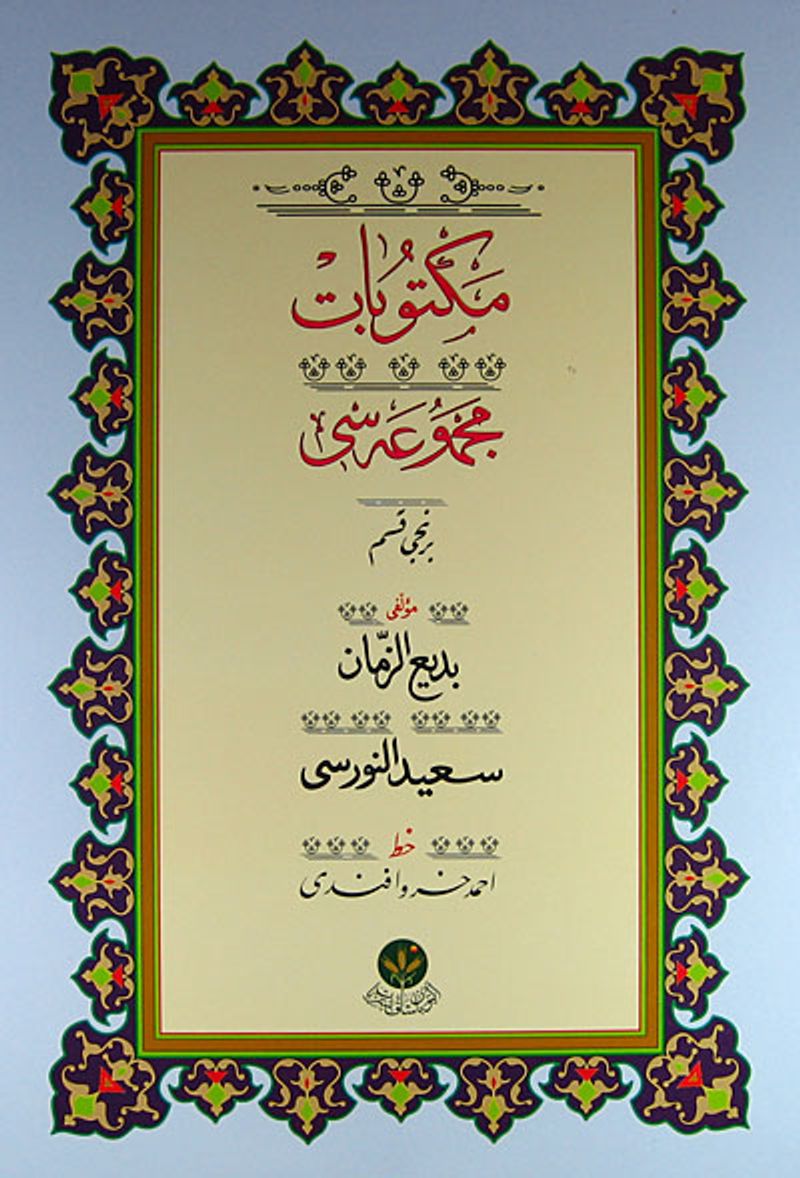 مَكْتُوبَات
مَجْمُوعَه سی
برنجی قسم
مؤلّفی
بديع الزّمان
سعيد النورسی
خط
احمد خسرو افندی